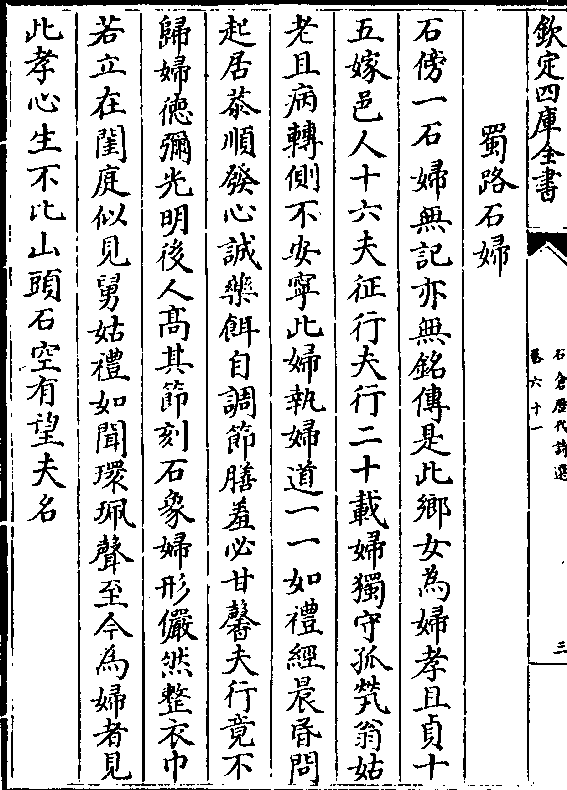 欽定四庫全書
石倉歷代詩選
卷六十一
三
蜀路石婦
石傍一石婦無記亦無銘傳是此鄉女為婦孝且貞十
五嫁邑人十六夫征行夫行二十載婦獨守孤煢翁姑
老且病轉側不安寧此婦執婦道一一如禮經晨昏問
起居恭順發心誠藥餌自調節膳羞必甘馨夫行竟不
歸婦德彌光明後人髙其節刻石象婦形儼然整衣巾
若立在閨庭似見舅姑禮如聞環珮聲至今為婦者見
此孝心生不比山頭石空有望夫名